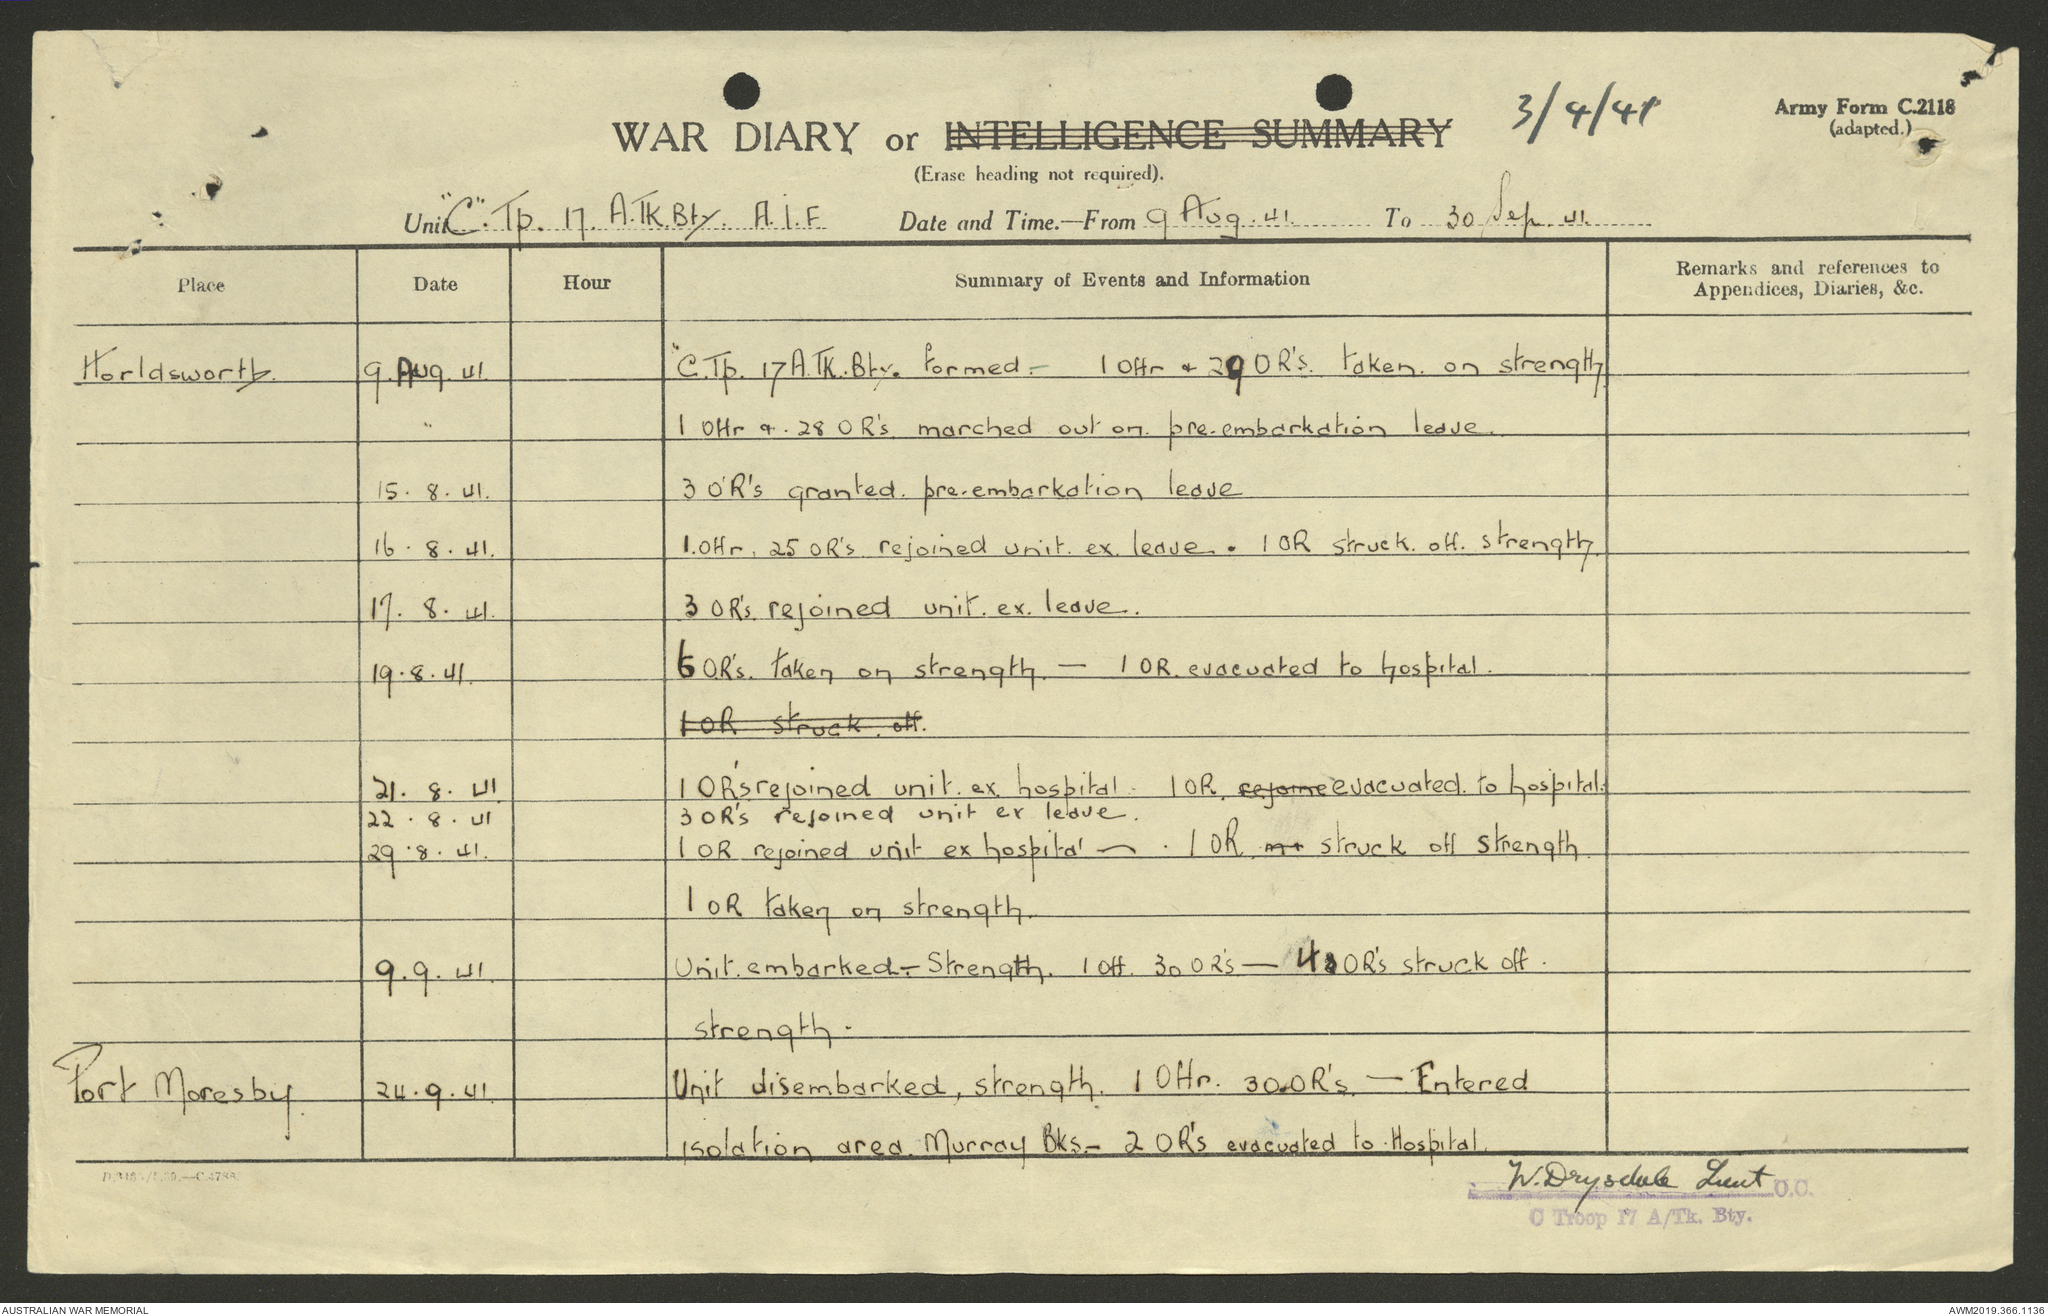 3/4/41
Army Form C.2118
(adapted.)
WAR DIARY or INTELLIGENCE SUMMARY
(Erase heading not required).
Unit "C". Tp. 17 A.TK.Bty. A.I.F Date and Time.—From 9 Aug. 41. To 30 Sep. 41.
Place Date Hour Summary of Events and Information Remarks and references to
Appendices, Diaries, &c.
Horldsworth 9. Aug. 41. "C.Tp. 17 A.TK.Bty. formed - 1 Offr + 29 OR's. taken on strength
" 1 Offr + 28 OR's. marched out on pre-embarkation leave.
15. 8. 41. 3 OR's granted pre-embarkation leave
16. 8. 41. 1 Offr, 25 OR's rejoined unit ex. leave. 1 OR struck off strength.
17. 8. 41. 3 OR's rejoined unit ex. leave.
19. 8. 41. 6 OR's. taken on strength — 1 OR. evacuated to hospital.
1 OR struck off.
21. 8. 41 1 OR's rejoined unit ex hospital. 1 OR. rejoine evacuated to hospital.
22. 8. 41 3 OR's rejoined unit ex leave.
29. 8. 41. 1 OR rejoined unit ex hospital — 1 OR struck off strength
1 OR taken on strength.
9. 9. 41. Unit embarked - Strength. 1 Off. 30 OR's — 4 OR's struck off
strength.
Port Moresby 24. 9. 41. Unit disembarked, strength. 1 Offr. 30 OR's — Entered
isolation area Murray Bks - 2 OR's evacuated to Hospital.
W. Drysdale Lieut O.C.
C Troop 17 A/Tk. Bty.
AUSTRALIAN WAR MEMORIAL AWM2019.366.1136